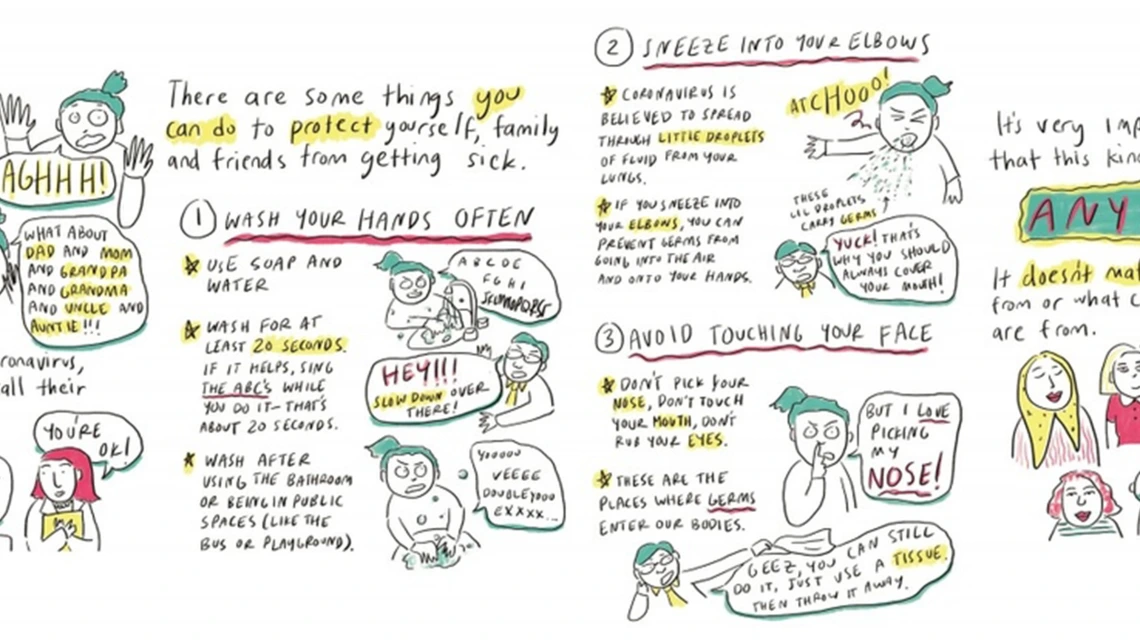 AGHHH!
WHAT ABOUT
DAD AND MOM
AND GRANDPA
AND GRANDMA
AND UNCLE AND
AUNTIE!!!
ronavirus,
all their
YOU'RE
OK!
There are some things you
can do to protect yourself, family
and friends from getting sick.
1 WASH YOUR HANDS OFTEN
USE SOAP AND
WATER
WASH FOR AT
LEAST 20 SECONDS.
IF IT HELPS, SING
THE ABC'S WHILE
YOU DO IT-THAT'S
ABOUT 20 SECONDS.
WASH AFTER
USING THE BATHROOM
OR BEING IN PUBLIC
SPACES (LIKE THE
BUS OR PLAYGROUND).
A B C D E
F G H I
JKLMNOPQRST
HEY!!!
SLOW DOWN OVER
THERE!
YOOOOO
VEEEE
DOUBLEYOOO
EXXXX...
2 SNEEZE INTO YOUR ELBOWS
CORONAVIRUS IS
BELIEVED TO SPREAD
THROUGH LITTLE DROPLETS
OF FLUID FROM YOUR
LUNGS.
IF YOU SNEEZE INTO
YOUR ELBOWS, YOU CAN
PREVENT GERMS FROM
GOING INTO THE AIR
AND ONTO YOUR HANDS.
ATCHOOO!
THESE
LIL DROPLETS
CARRY GERMS
YUCK! THAT'S
WHY YOU SHOULD
ALWAYS COVER
YOUR MOUTH!
3 AVOID TOUCHING YOUR FACE
DON'T PICK YOUR
NOSE, DON'T TOUCH
YOUR MOUTH, DON'T
RUB YOUR EYES.
THESE ARE THE
PLACES WHERE GERMS
ENTER OUR BODIES.
BUT I LOVE
PICKING
MY
NOSE!
GEEZ, YOU CAN STILL
DO IT, JUST USE A TISSUE.
THEN THROW IT AWAY.
It's very imp
that this kin
ANY
It doesn't mat
from or what c
are from.